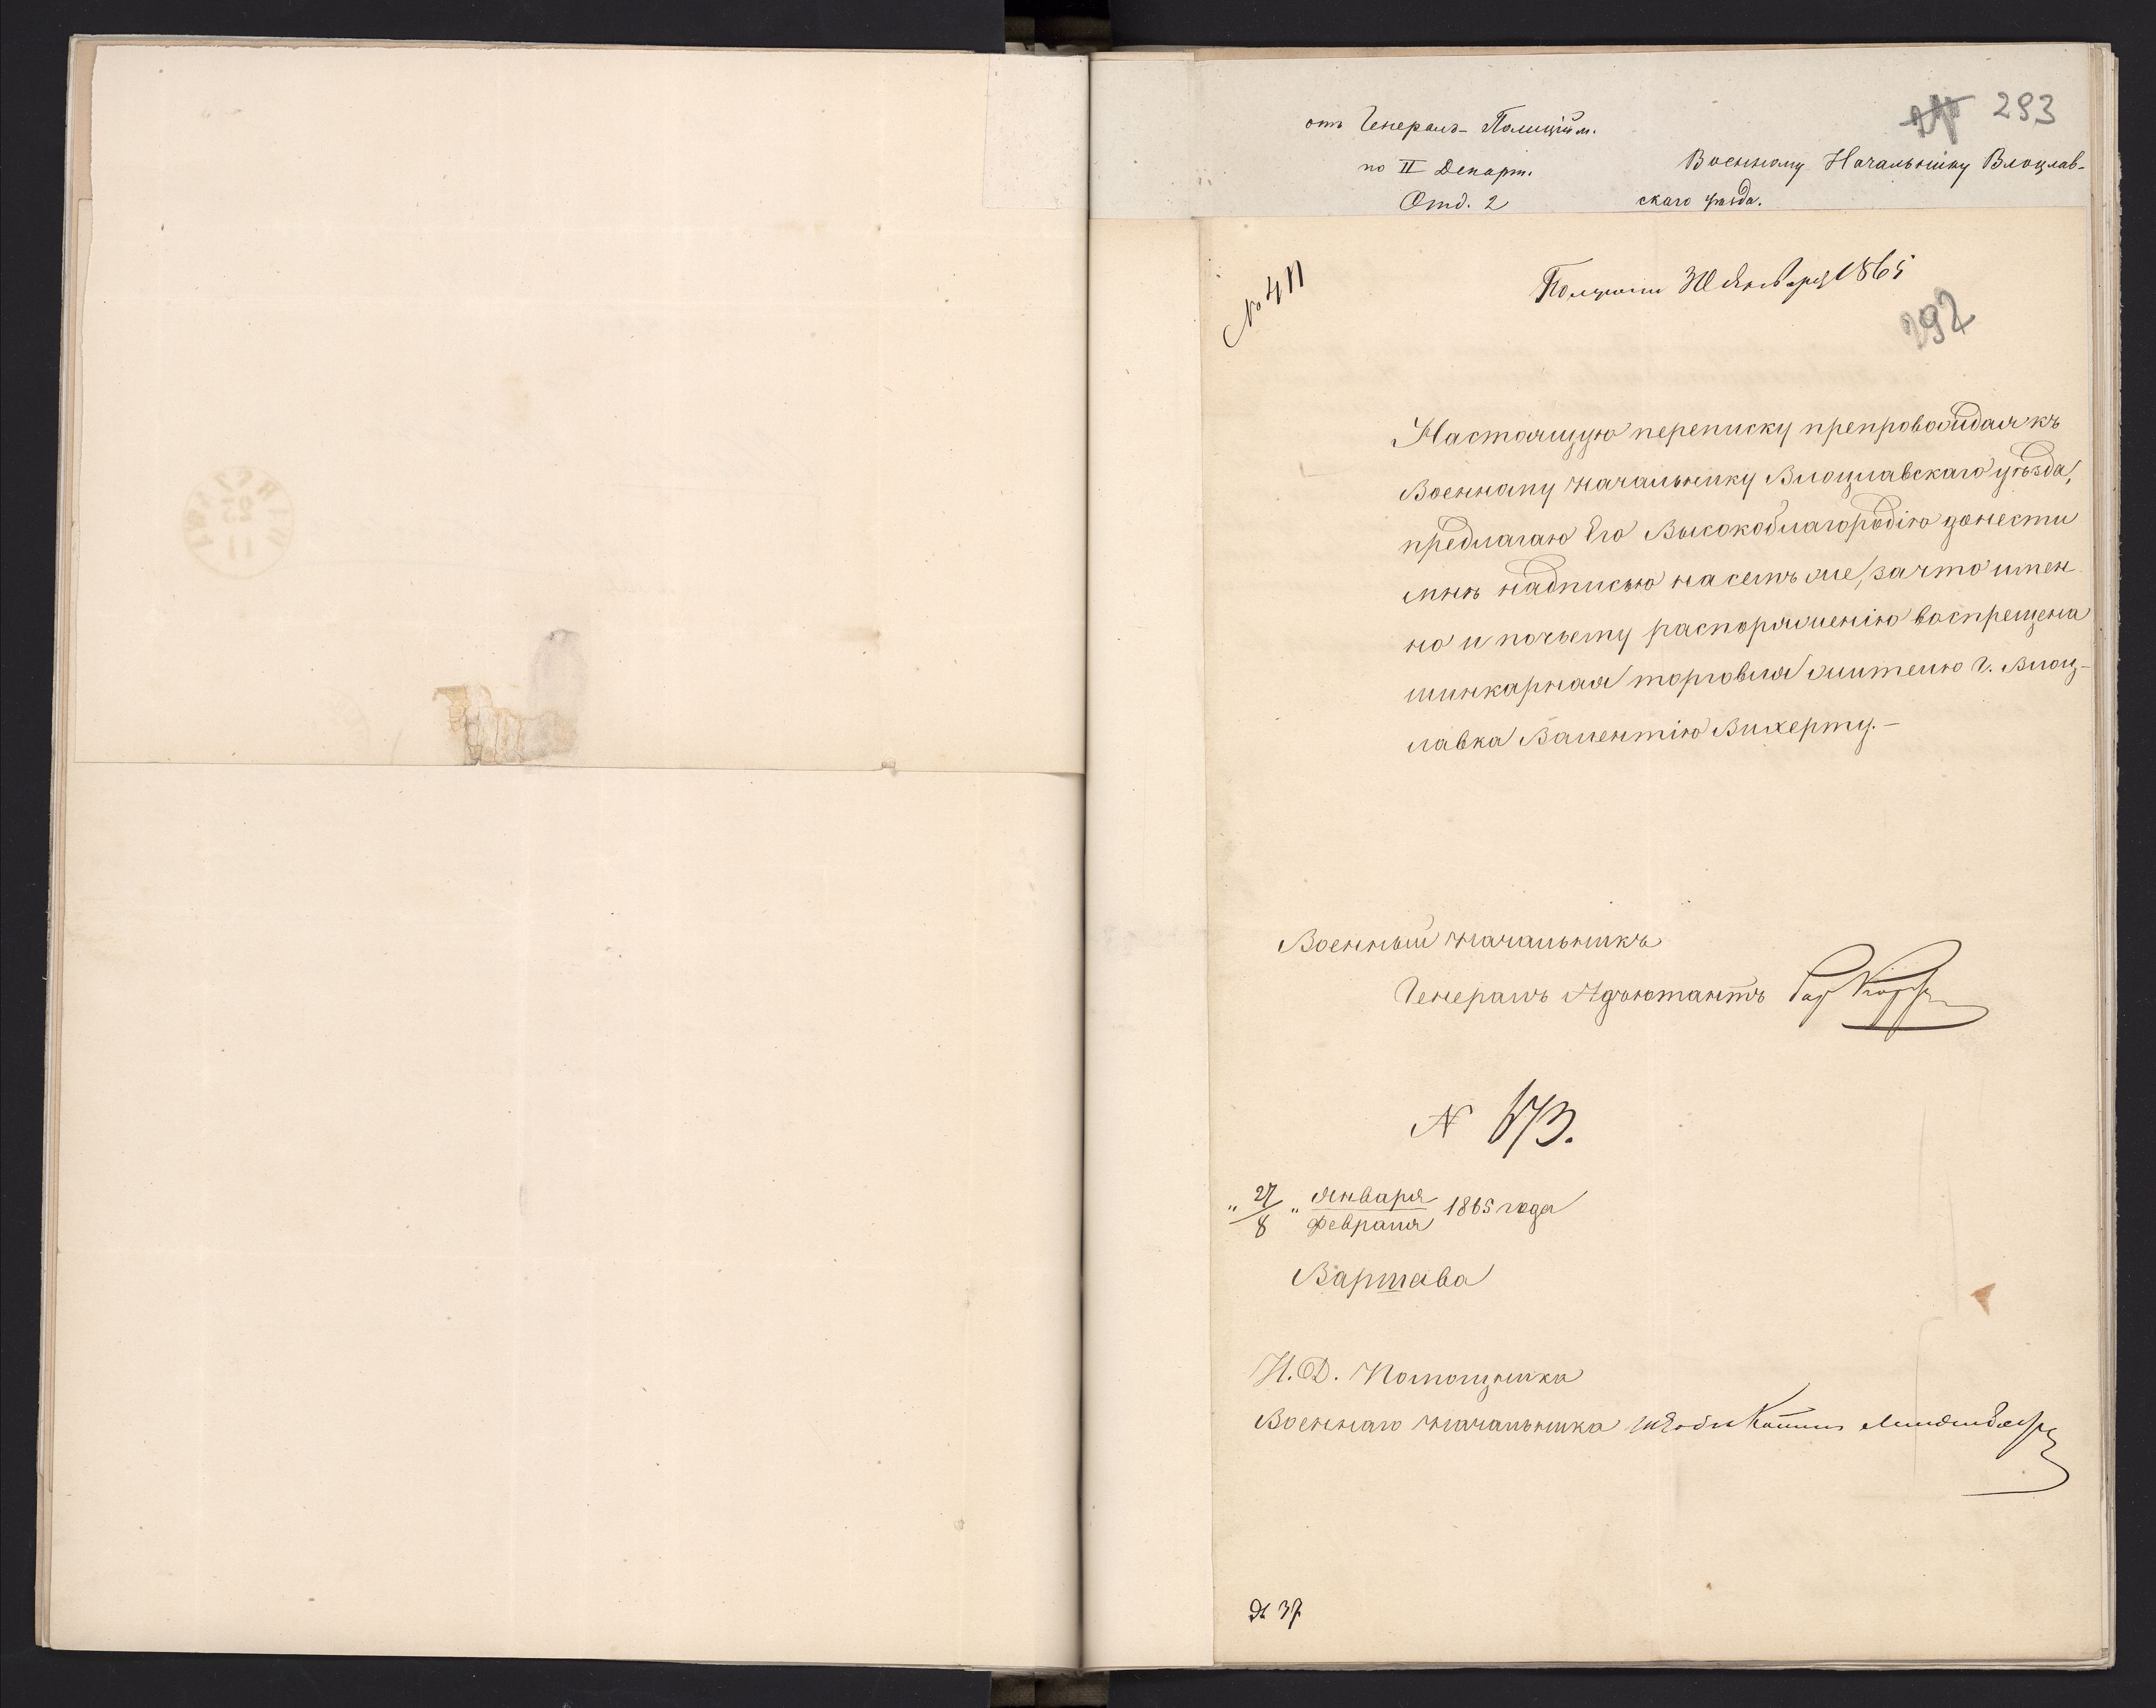 293
отъ Генералъ-Полиціим.
по II Департ.
Отд. 2
Военному Начальнику Влоцлав-
скаго уѣзда.
№ 411
Получени 30 Января 1865
292
Настоящую переписку препровождая къ
Военному Начальнику Влоцлавскаго уѣзда,
предлагаю Его Высокоблагородію донести
мнѣ надписью на семъ же, за что имен
но и почьему распоряженію воспрещена
шинкарная торговля жителю г. Влоц-
лавка Валентію Вихерту.-
Военный Начальникъ
Генералъ Адъютантъ Бар Корфъ
N 673.
" 27/8 " Января/Февраля 1865 года
Варшава
И. Д. Помощника
Военнаго Начальника
Д 37